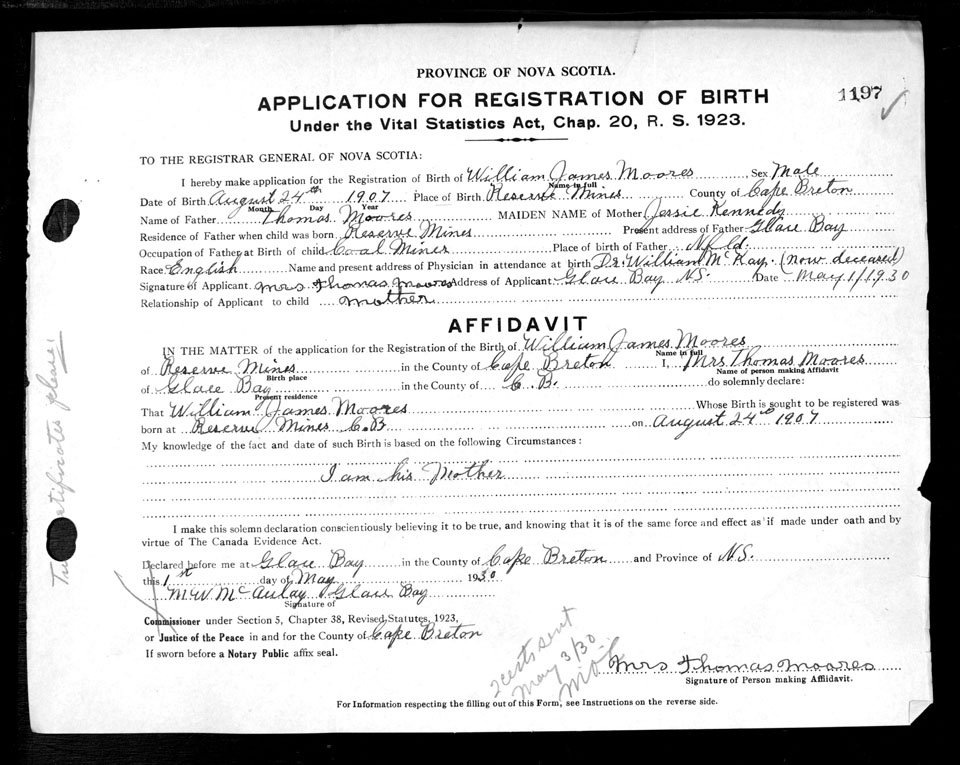 PROVINCE OF NOVA SCOTIA.
1197
APPLICATION FOR REGISTRATION OF BIRTH
Under the Vital Statistics Act, Chap. 20, R. S. 1923.
TO THE REGISTRAR GENERAL OF NOVA SCOTIA:
I hereby make application for the Registration of Birth of William James Moores Sex Male
Name in full
Date of Birth August 24th 1907 Place of Birth Reserve Mines County of Cape Breton
Month Day Year
Name of Father Thomas Moores MAIDEN NAME of Mother Jessie Kennedy
Residence of Father when child was born Reserve Mines Present address of Father Glace Bay
Occupation of Father at Birth of child Coal Miner Place of birth of Father Nfld.
Race English Name and present address of Physician in attendance at birth Dr. William McKay. (now deceased)
Signature of Applicant Mrs Thomas Moores Address of Applicant Glace Bay N.S. Date May 1/1930
Relationship of Applicant to child Mother
AFFIDAVIT
IN THE MATTER of the application for the Registration of the Birth of William James Moores
Name in full
of Reserve Mines in the County of Cape Breton I, Mrs Thomas Moores
Birth place Name of person making Affidavit
of Glace Bay in the County of C. B. do solemnly declare:
Present residence
That William James Moores Whose Birth is sought to be registered was
born at Reserve Mines C.B on August 24th 1907
My knowledge of the fact and date of such Birth is based on the following Circumstances:
I am his Mother
I make this solemn declaration conscientiously believing it to be true, and knowing that it is of the same force and effect as if made under oath and by
virtue of The Canada Evidence Act.
Declared before me at Glace Bay in the County of Cape Breton and Province of N.S.
this 1st day of May 1930
M W McAulay Glace Bay
Signature of
Commissioner under Section 5, Chapter 38, Revised Statutes, 1923,
or Justice of the Peace in and for the County of Cape Breton
If sworn before a Notary Public affix seal.
2 certs sent
May 3/30
Mrs Thomas Moores
Signature of Person making Affidavit.
For Information respecting the filling out of this Form, see Instructions on the reverse side.
please